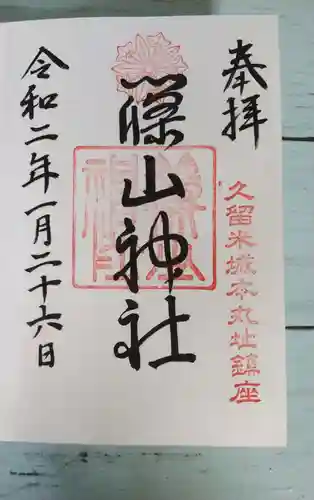 奉拝
久留米城本丸址鎮座
篠山神社
令和二年一月二十六日